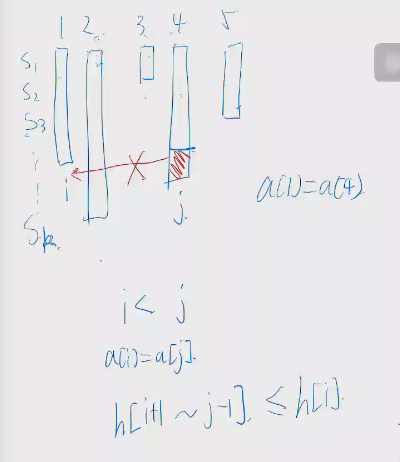 1 2 3 4 5
S1
S2
S3
i
j
Sk
a(1)=a(4)
i < j
a[i]=a[j].
h[i+1 ~ j-1] ≤ h[i].